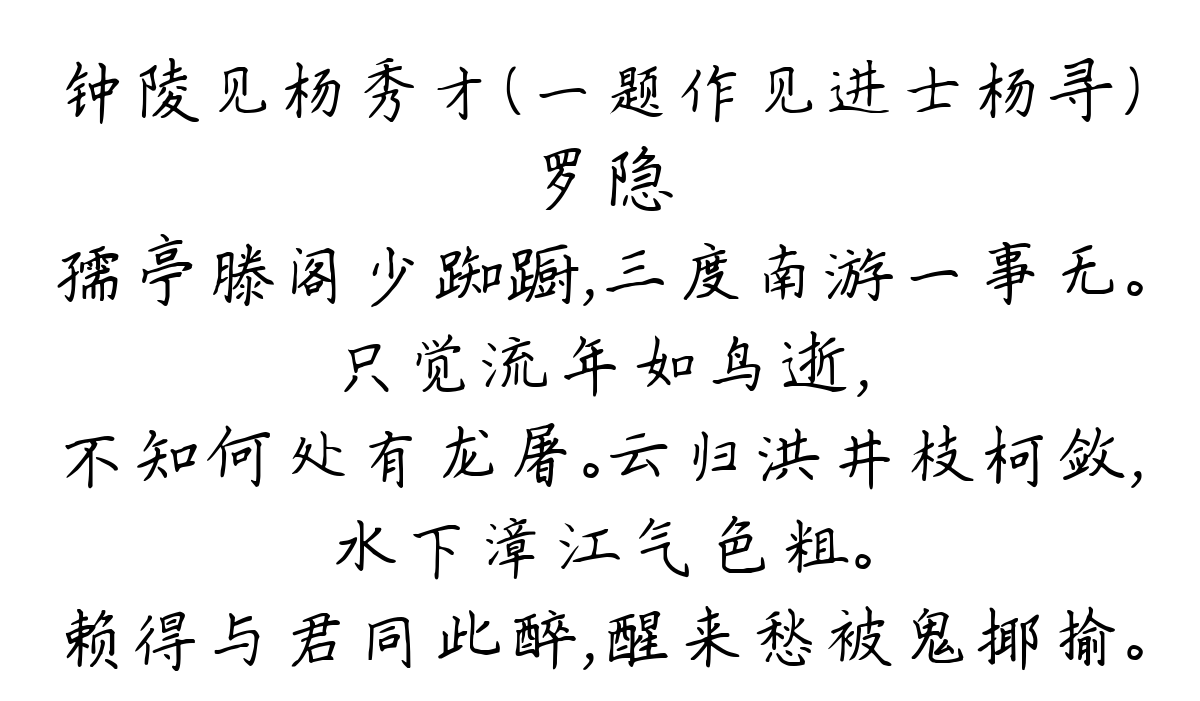 钟陵见杨秀才(一题作见进士杨寻)
罗隐
孺亭滕阁少踟蹰,三度南游一事无。
只觉流年如鸟逝,
不知何处有龙屠。云归洪井枝柯敛,
水下漳江气色粗。
赖得与君同此醉,醒来愁被鬼揶揄。